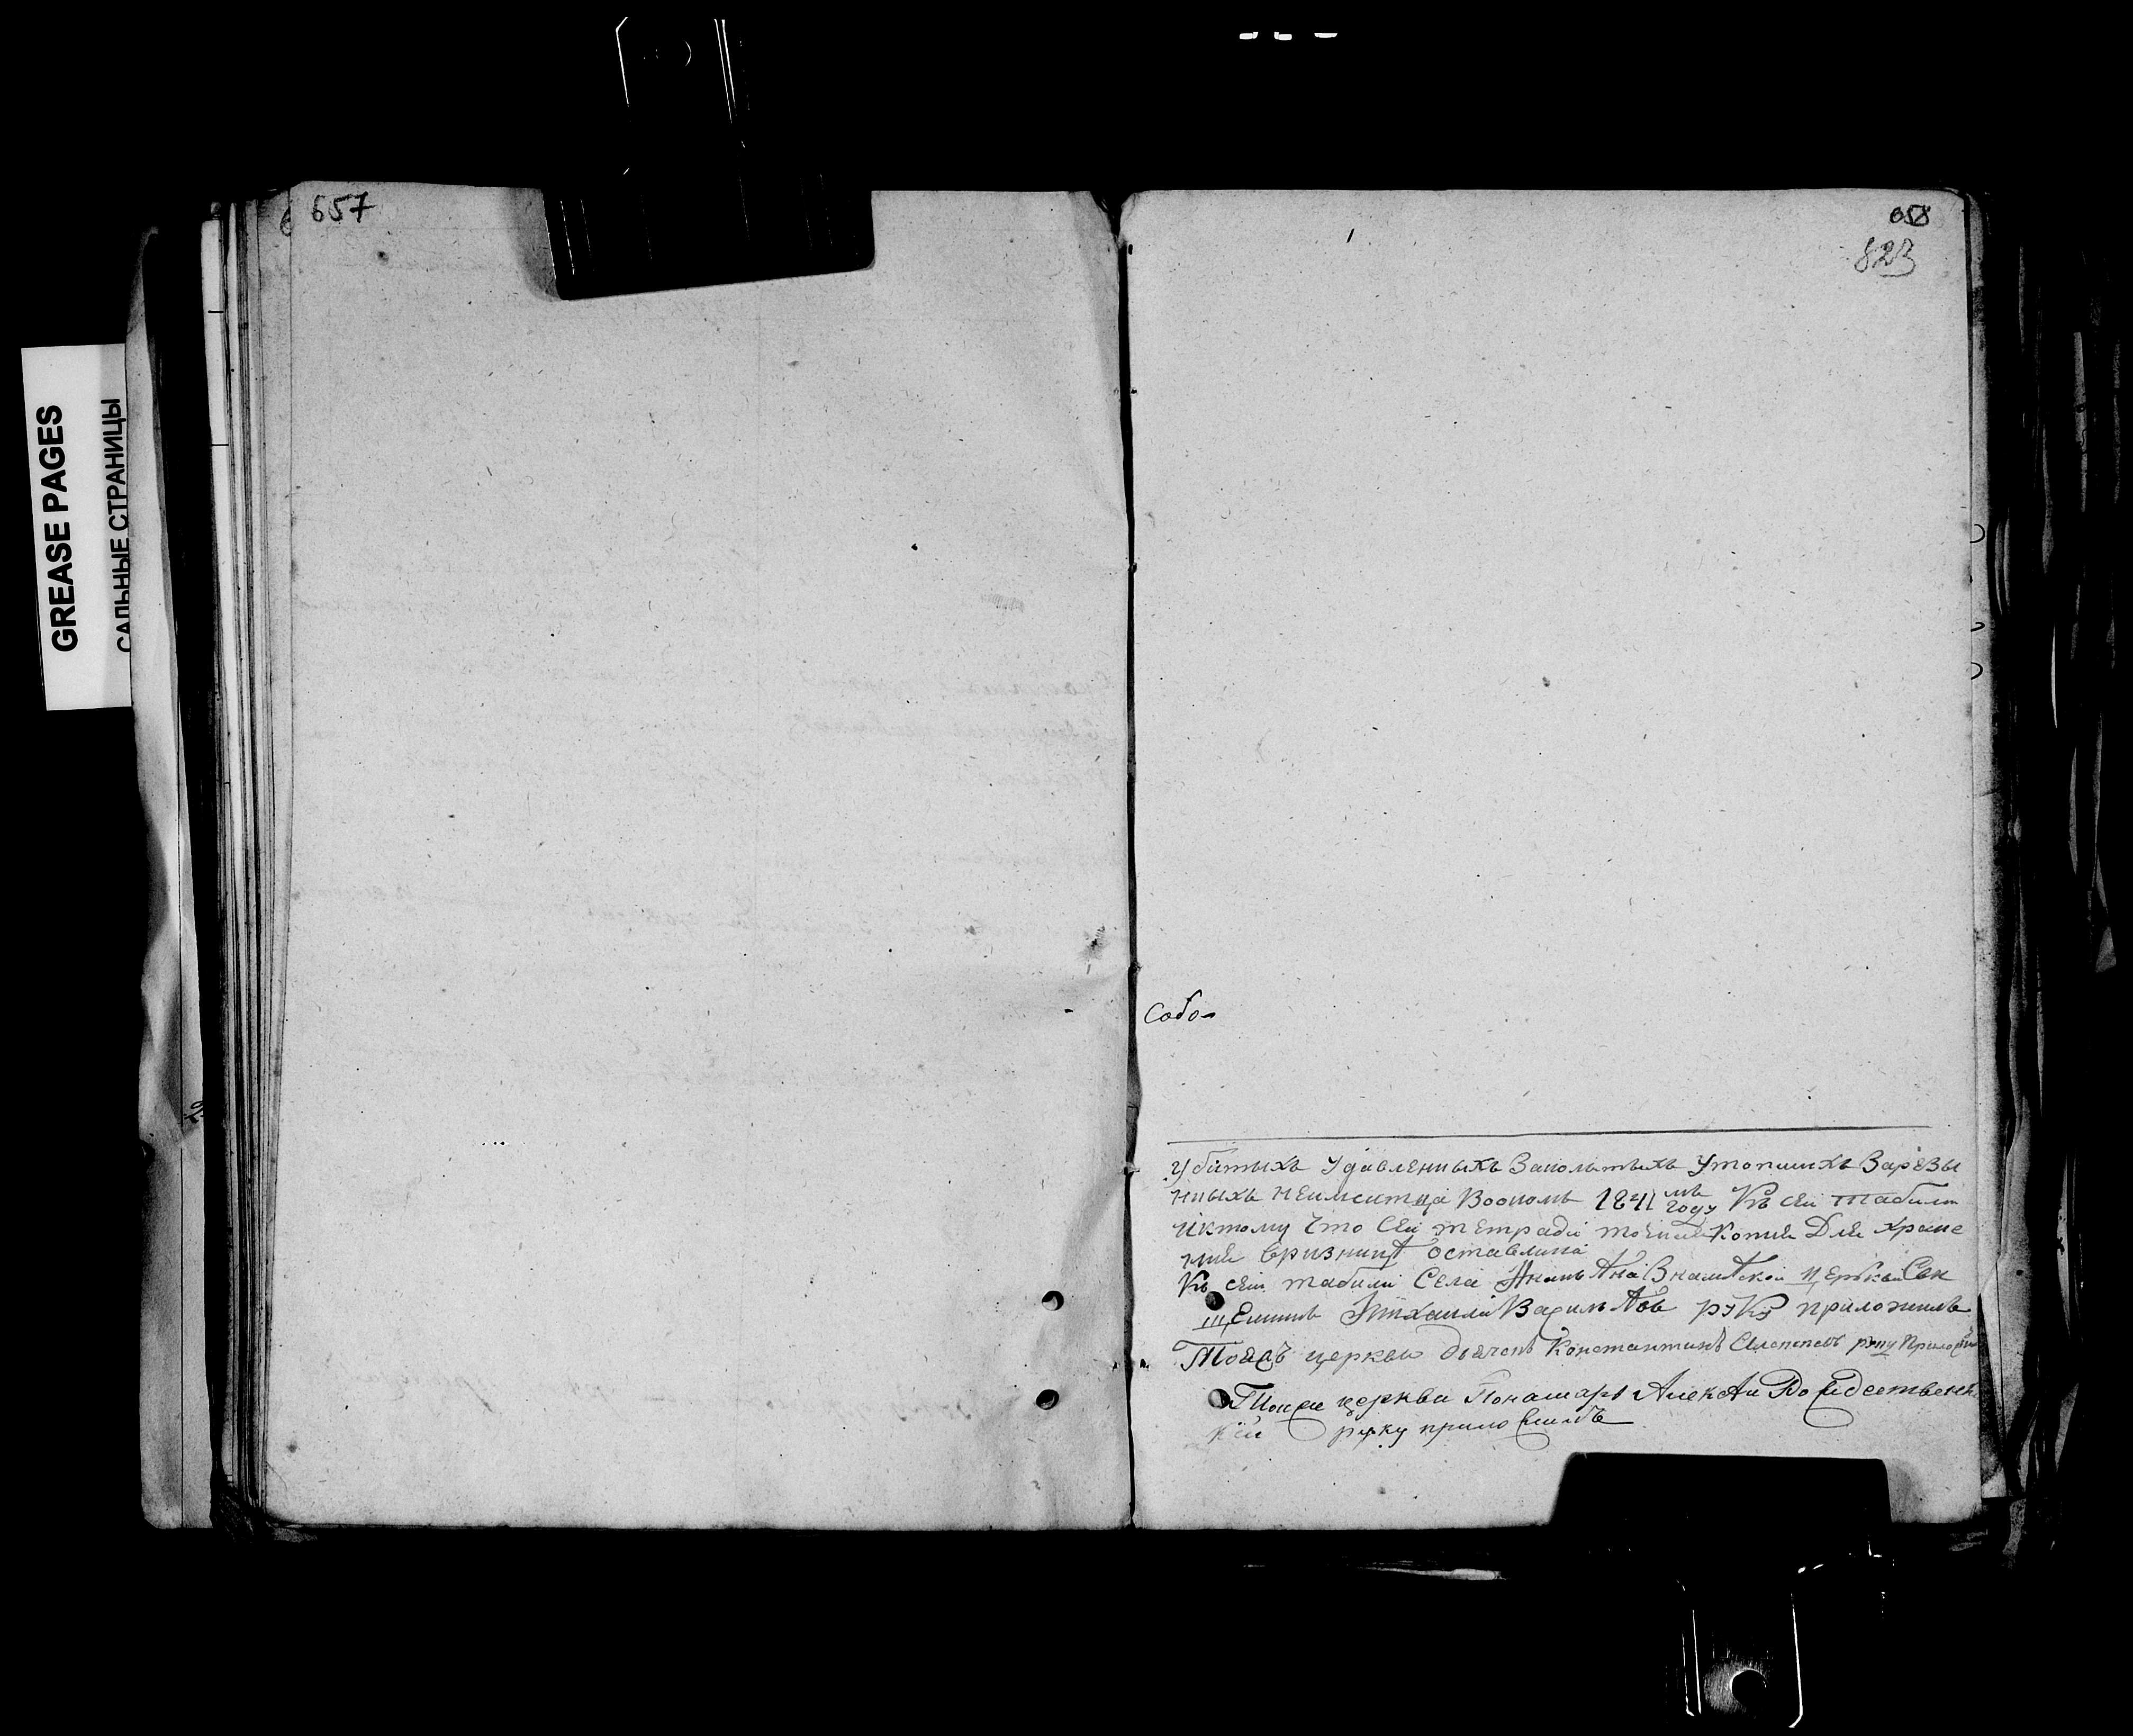 GREASE PAGES
САЛЬНЫЕ СТРАНИЦЫ
657
658
823
Собо-
убитыхъ удавленныхъ Заполетыхъ утопшихъ Зарезы
нныхъ неимеитца Воономъ 1841 мъ году Къ сеи табели
иктому что сеи тетради точные копие Для хране
ние вризницѣ оставлина
Къ сеи табели Села церкви Свя
щенникъ Михаилъ руку приложилъ
Тояжъ церкви дьячекъ Константинъ руку Приложилъ
Тоеже церкви Понамарь Алексѣи Рождественс
кiи руку приложилъ